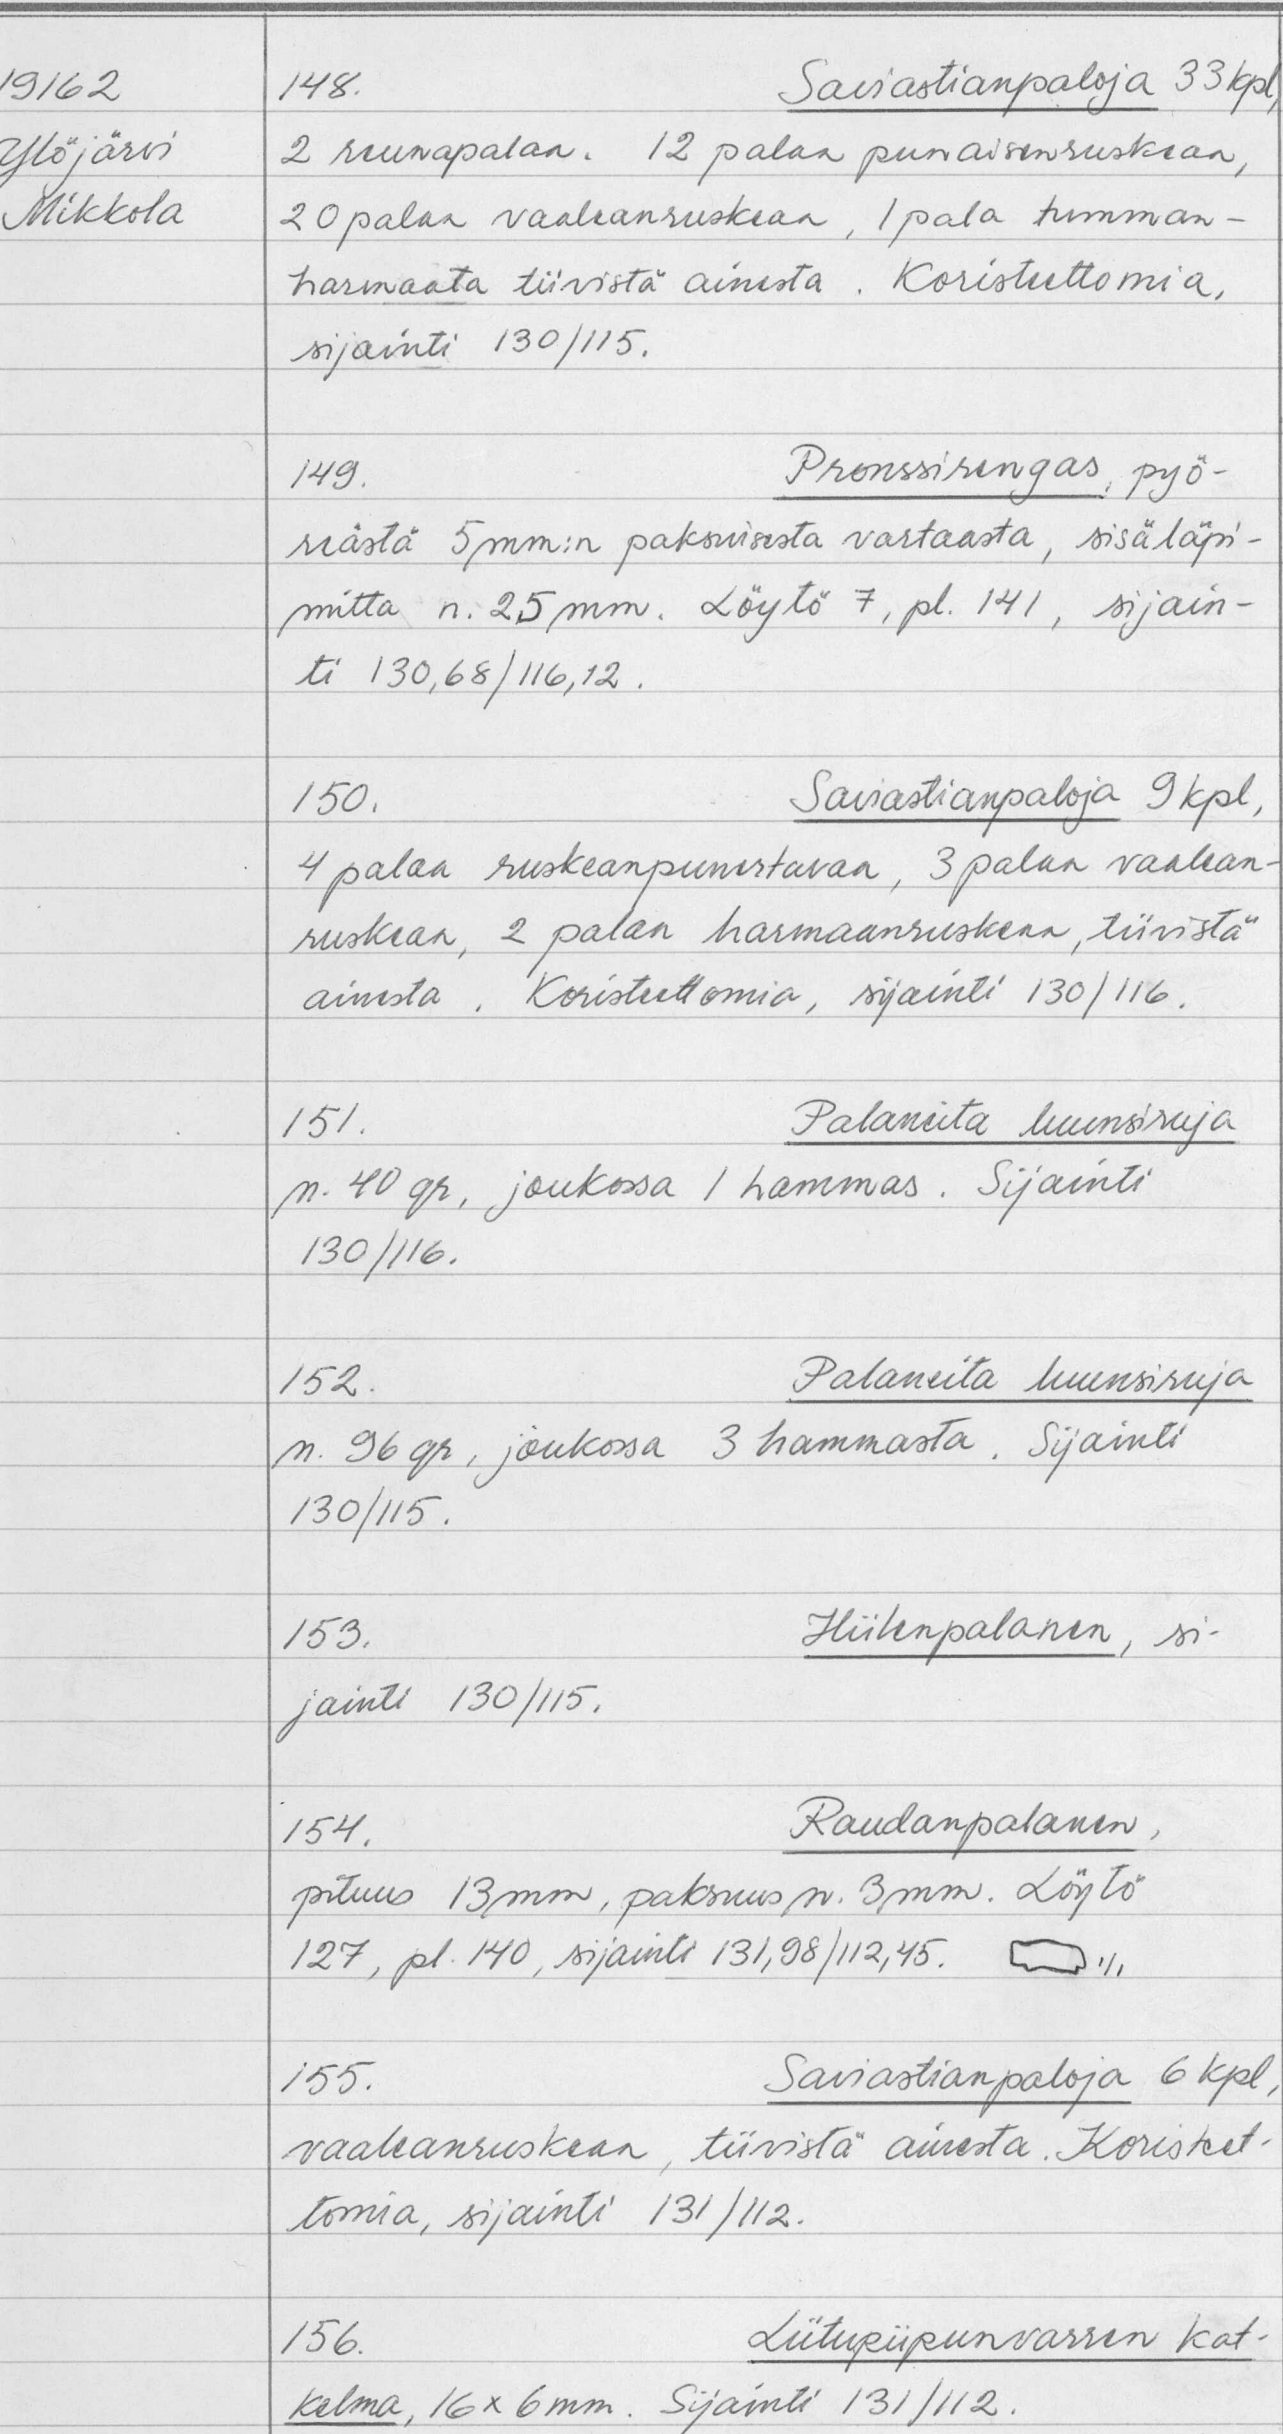 19162
Ylöjärvi
Mikkola
148. Saviastianpaloja 33 kpl,
2 reunapalaa. 12 palaa punaisenruskeaa,
20 palaa vaaleanruskeaa, 1 pala tumman-
harmaata tiivistä ainesta. Koristeettomia,
sijainti 130/115.
149. Pronssirengas, pyö-
reästä 5 mm:n paksuisesta vartaasta, sisäläpi-
mitta n. 25 mm. Löytö 7, pl. 141, sijain-
ti 130,68/116,12.
150. Saviastianpaloja 9 kpl,
4 palaa ruskeanpunertavaa, 3 palaa vaalean-
ruskeaa, 2 palaa harmaanruskeaa, tiivistä
ainesta. Koristeettomia, sijainti 130/116.
151. Palaneita luunsiruja
n. 40 gr, joukossa 1 hammas. Sijainti
130/116.
152. Palaneita luunsiruja
n. 96 gr, joukossa 3 hammasta. Sijainti
130/115.
153. Hiilenpalanen, si-
jainti 130/115.
154. Raudanpalanen,
pituus 13 mm, paksuus n. 3 mm. Löytö
127, pl. 140, sijainti 131,98/112,45. 1/1
155. Saviastianpaloja 6 kpl,
vaaleanruskeaa, tiivistä ainesta. Koristeet-
tomia, sijainti 131/112.
156. Liitupiipunvarren kat-
kelma, 16 x 6 mm. Sijainti 131/112.